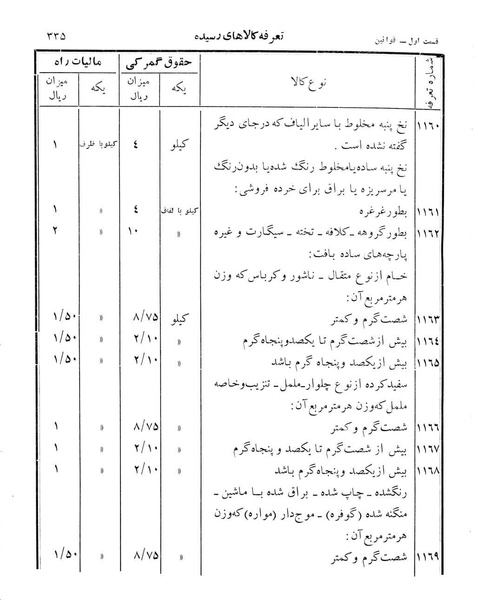 قسمت اول ــ قوانین
تعرفه کالاهای رسیده
۳۳۵
شماره تعرفه
نوع کالا
حقوق گمرکی
مالیات راه
یکه
میزان ریال
یکه
میزان ریال
۱۱۶۰ نخ پنبه مخلوط با سایر الیاف که در جای دیگر
گفته نشده است . کیلو ۴ کیلو با ظرف ۱
نخ پنبه ساده یا مخلوط رنگ شده یا بدون رنگ
یا مرسریزه یا براق برای خرده فروشی:
۱۱۶۱ بطور غرغره کیلو با لفاف ۴ » ۱
۱۱۶۲ بطور گروهه ـ کلافه ـ تخته ـ سیگارت و غیره » ۱۰ » ۲
پارچه‌های ساده بافت:
خام از نوع متقال ـ ناشور و کرباس که وزن
هر متر مربع آن:
۱۱۶۳ شصت گرم و کمتر کیلو ۸/۷۵ » ۱/۵۰
۱۱۶۴ بیش از شصت گرم تا یکصد و پنجاه گرم » ۲/۱۰ » ۱/۵۰
۱۱۶۵ بیش از یکصد و پنجاه گرم باشد » ۲/۱۰ » ۱/۵۰
سفید کرده از نوع چلوار ـ ململ ـ تنزیب و خاصه
ململ که وزن هر متر مربع آن:
۱۱۶۶ شصت گرم و کمتر » ۸/۷۵ » ۱
۱۱۶۷ بیش از شصت گرم تا یکصد و پنجاه گرم » ۲/۱۰ » ۱
۱۱۶۸ بیش از یکصد و پنجاه گرم باشد » ۲/۱۰ » ۱
رنگ شده ـ چاپ شده ـ براق شده با ماشین ـ
منگنه شده (گوفره) ـ موج دار (مواره) که وزن
هر متر مربع آن:
۱۱۶۹ شصت گرم و کمتر » ۸/۷۵ » ۱/۵۰